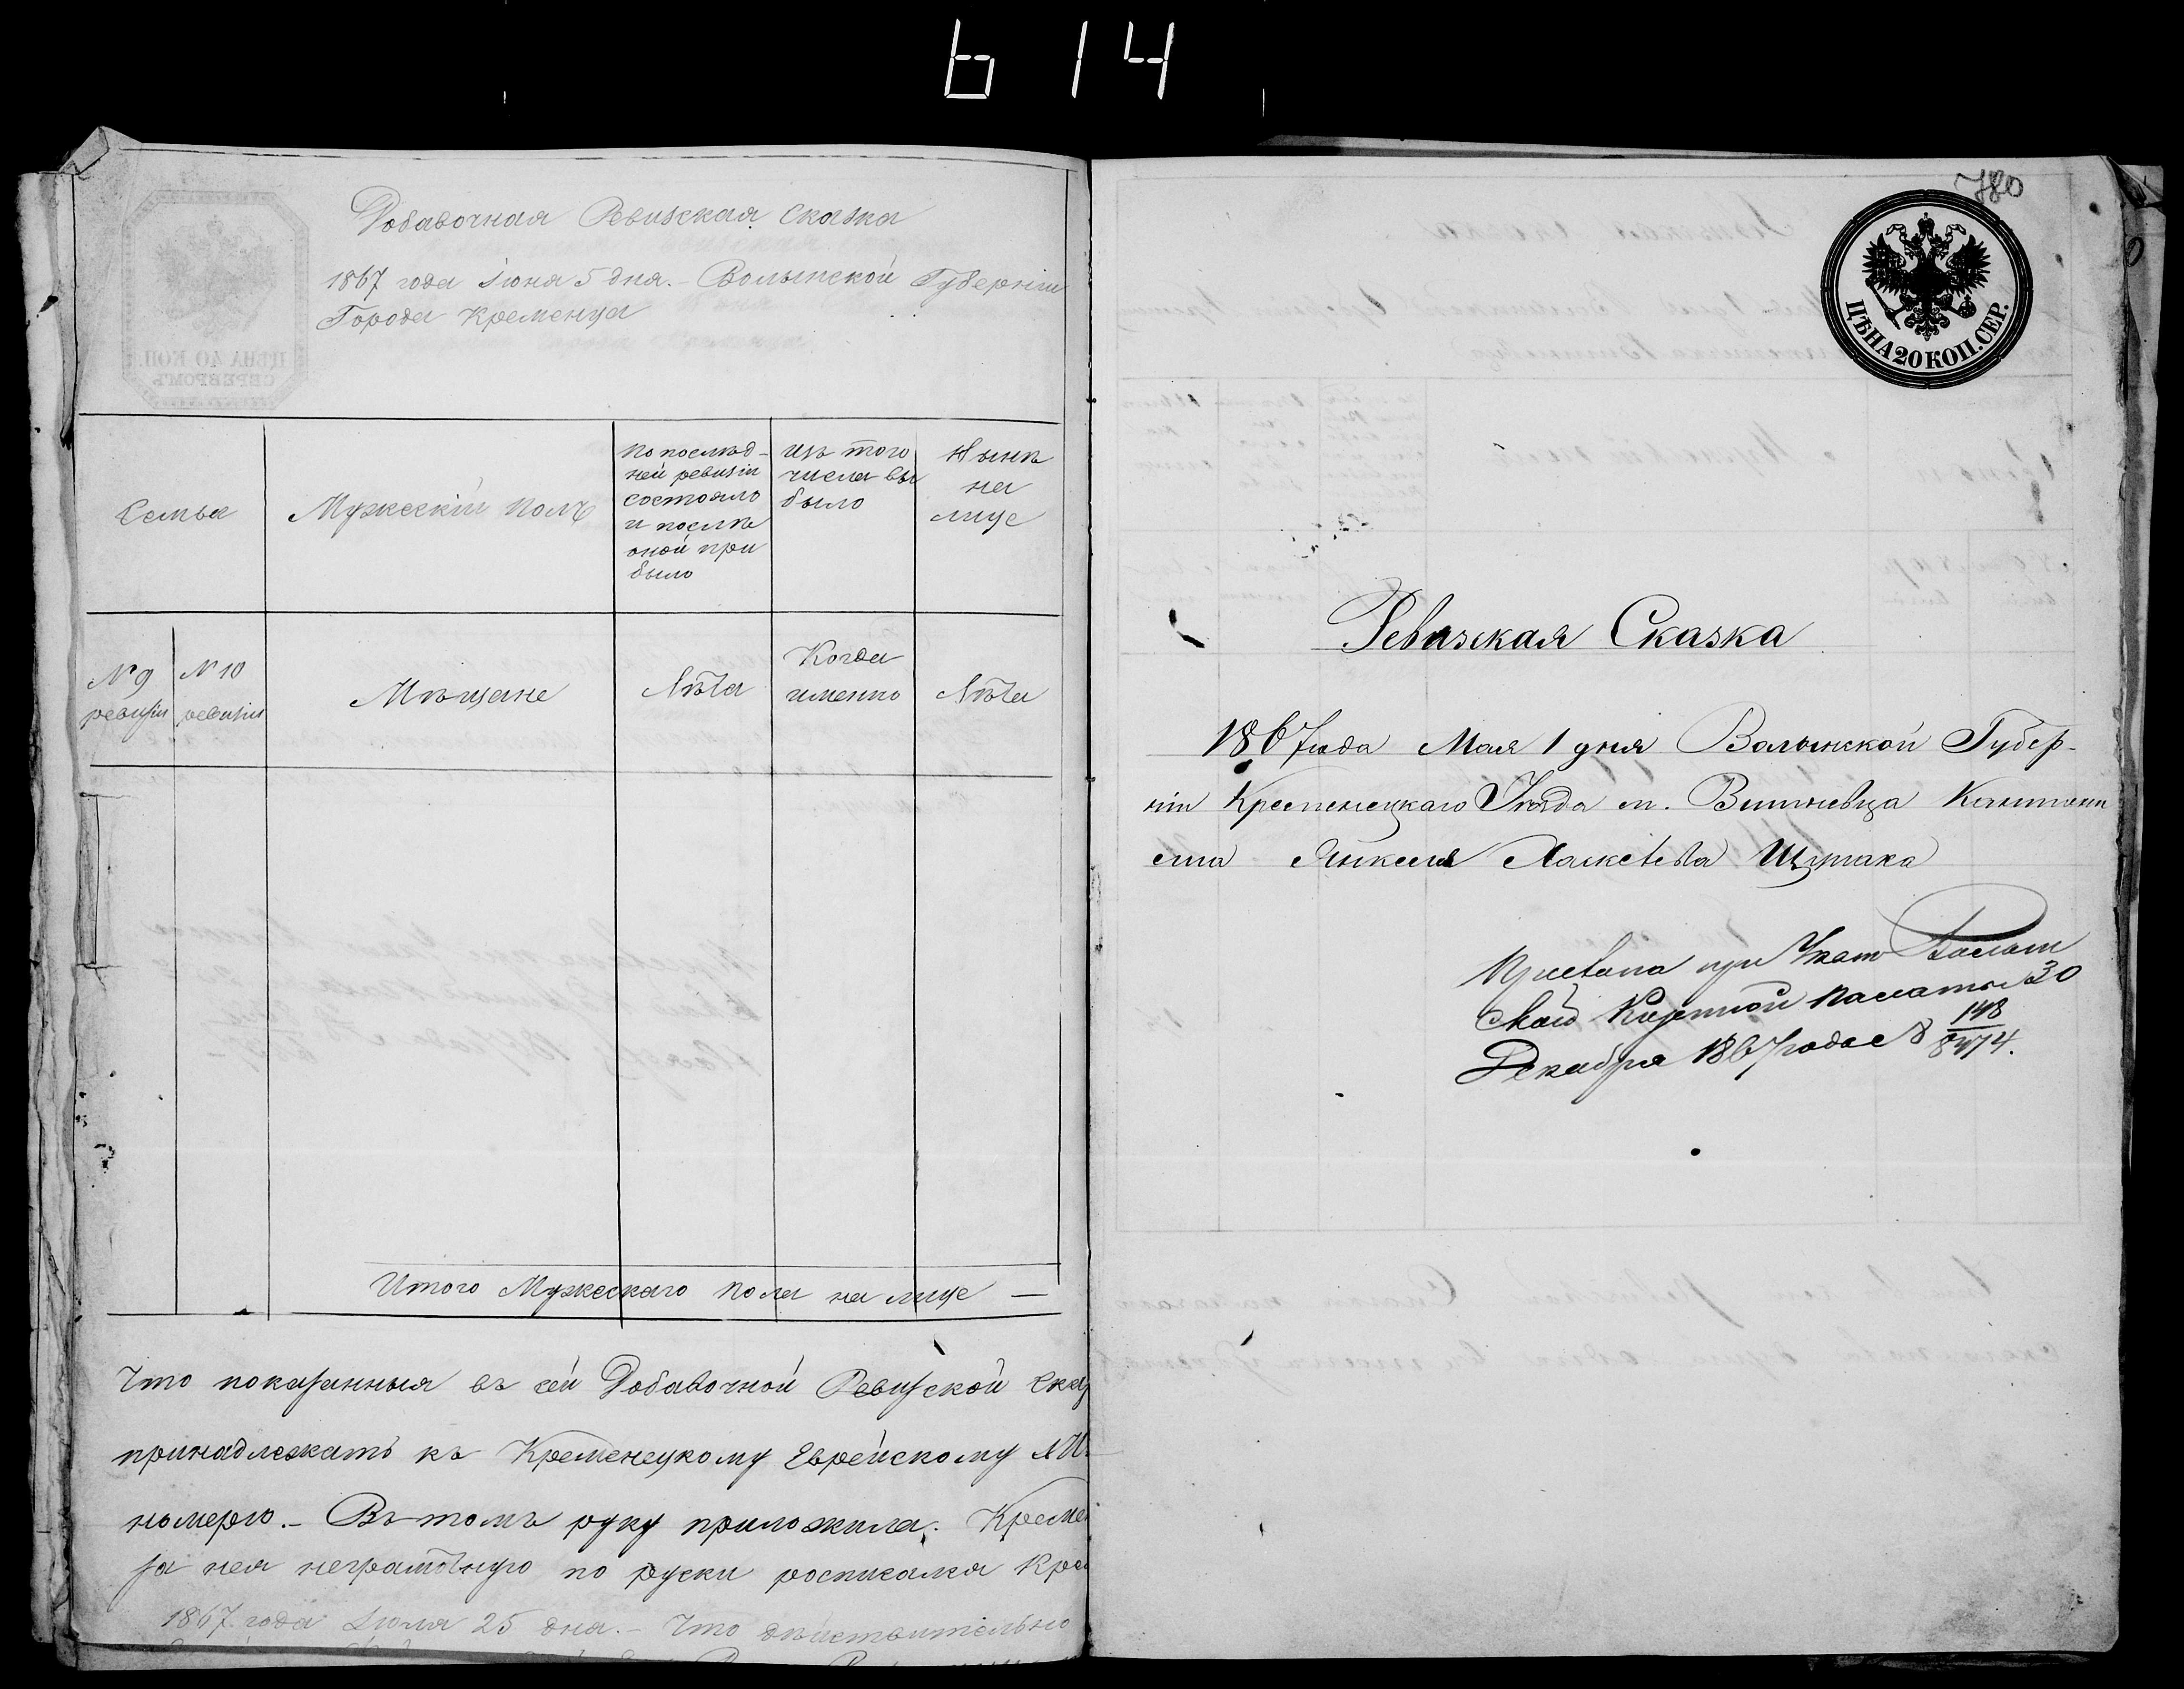 614
Добавочная Ревизская Сказка
1867 года Іюня 5 дня. – Волынской Губерніи
Города Кременца
ЦѢНА 40 КОП.
СЕРЕБРОМЪ
Семьи
Мужескій полъ
По послѣд-
ней ревизіи
состояло
и послѣ
оной при
было
Изъ того
числа вы
было
Нынѣ
на
лице
№ 9
ревизіи
№ 10
ревизіи
Мѣщане
Лѣта
Когда
именно
Лѣта
Итого Мужескаго пола на лице —
Что показанныя въ сей Добавочной Ревизской Сказ
принадлежатъ къ Кременецкому Еврейскому
номеро. – Въ томъ руку приложила. Кремен
за нея неграмотную по руски росписался Крем
1867 года Іюля 25 дня. – Что дѣйствительно
780
ЦѢНА 20 КОП. СЕР.
Ревизская Сказка
1867 года Мая 1 дня Волынской Губер-
ніи Кременецкаго Уѣзда м. Вишневца
Янкеля
при Указѣ
Казенной Палаты 30
Декабря 1867 года № 148
8474.